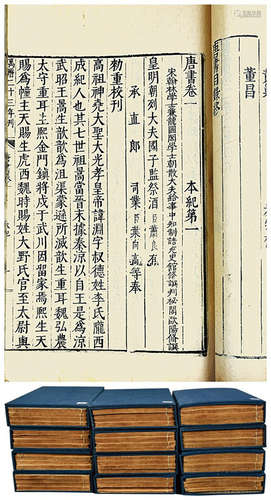 董昌
唐書卷一
本紀第一
宋翰林學士兼龍圖閣學士朝散大夫給事中知制誥充史館脩撰判秘閣歐陽脩撰
皇明朝列大夫國子監祭酒臣蕭良有
承直郎司業臣葉向高等奉
勑重校刊
高祖神堯大聖大光孝皇帝諱淵字叔德姓李氏隴西
成紀人也其七世祖暠當晉末據秦涼以自王是爲涼
武昭王暠生歆歆爲沮渠蒙遜所滅歆生重耳魏弘農
太守重耳生熙金門鎮將戍于武川因留家焉熙生天
賜爲幢主天賜生虎西魏時賜姓大野氏官至太尉與
萬曆二十三年刊